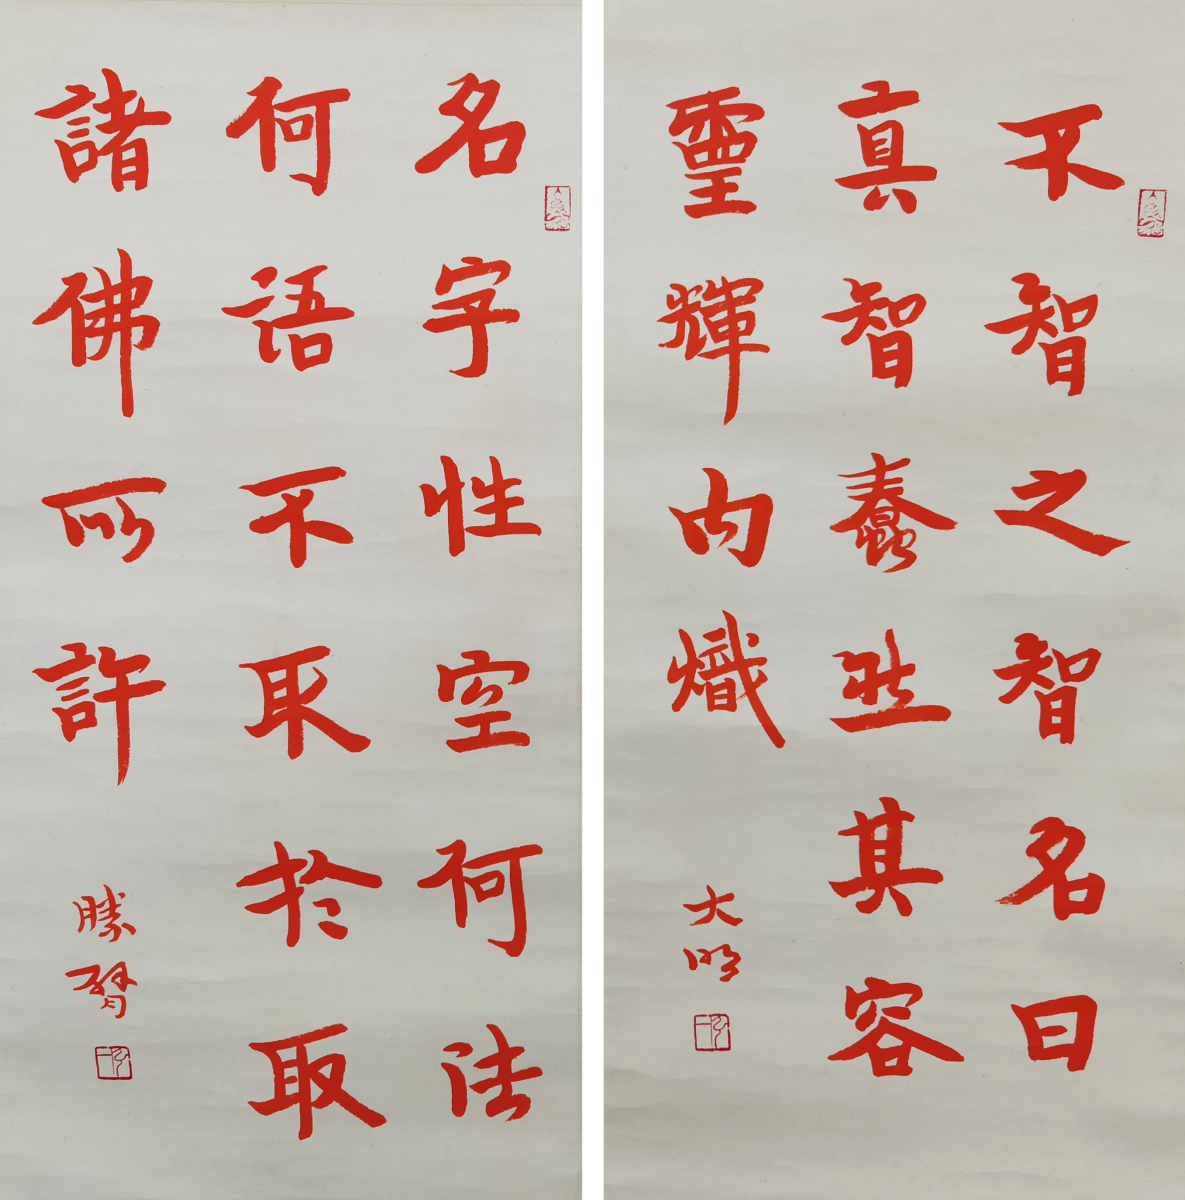 不智之智名曰
真智蠢然其容
靈輝內熾
大明
弘一
名字性空何法
何語不取於取
諸佛所許
勝臂
弘一